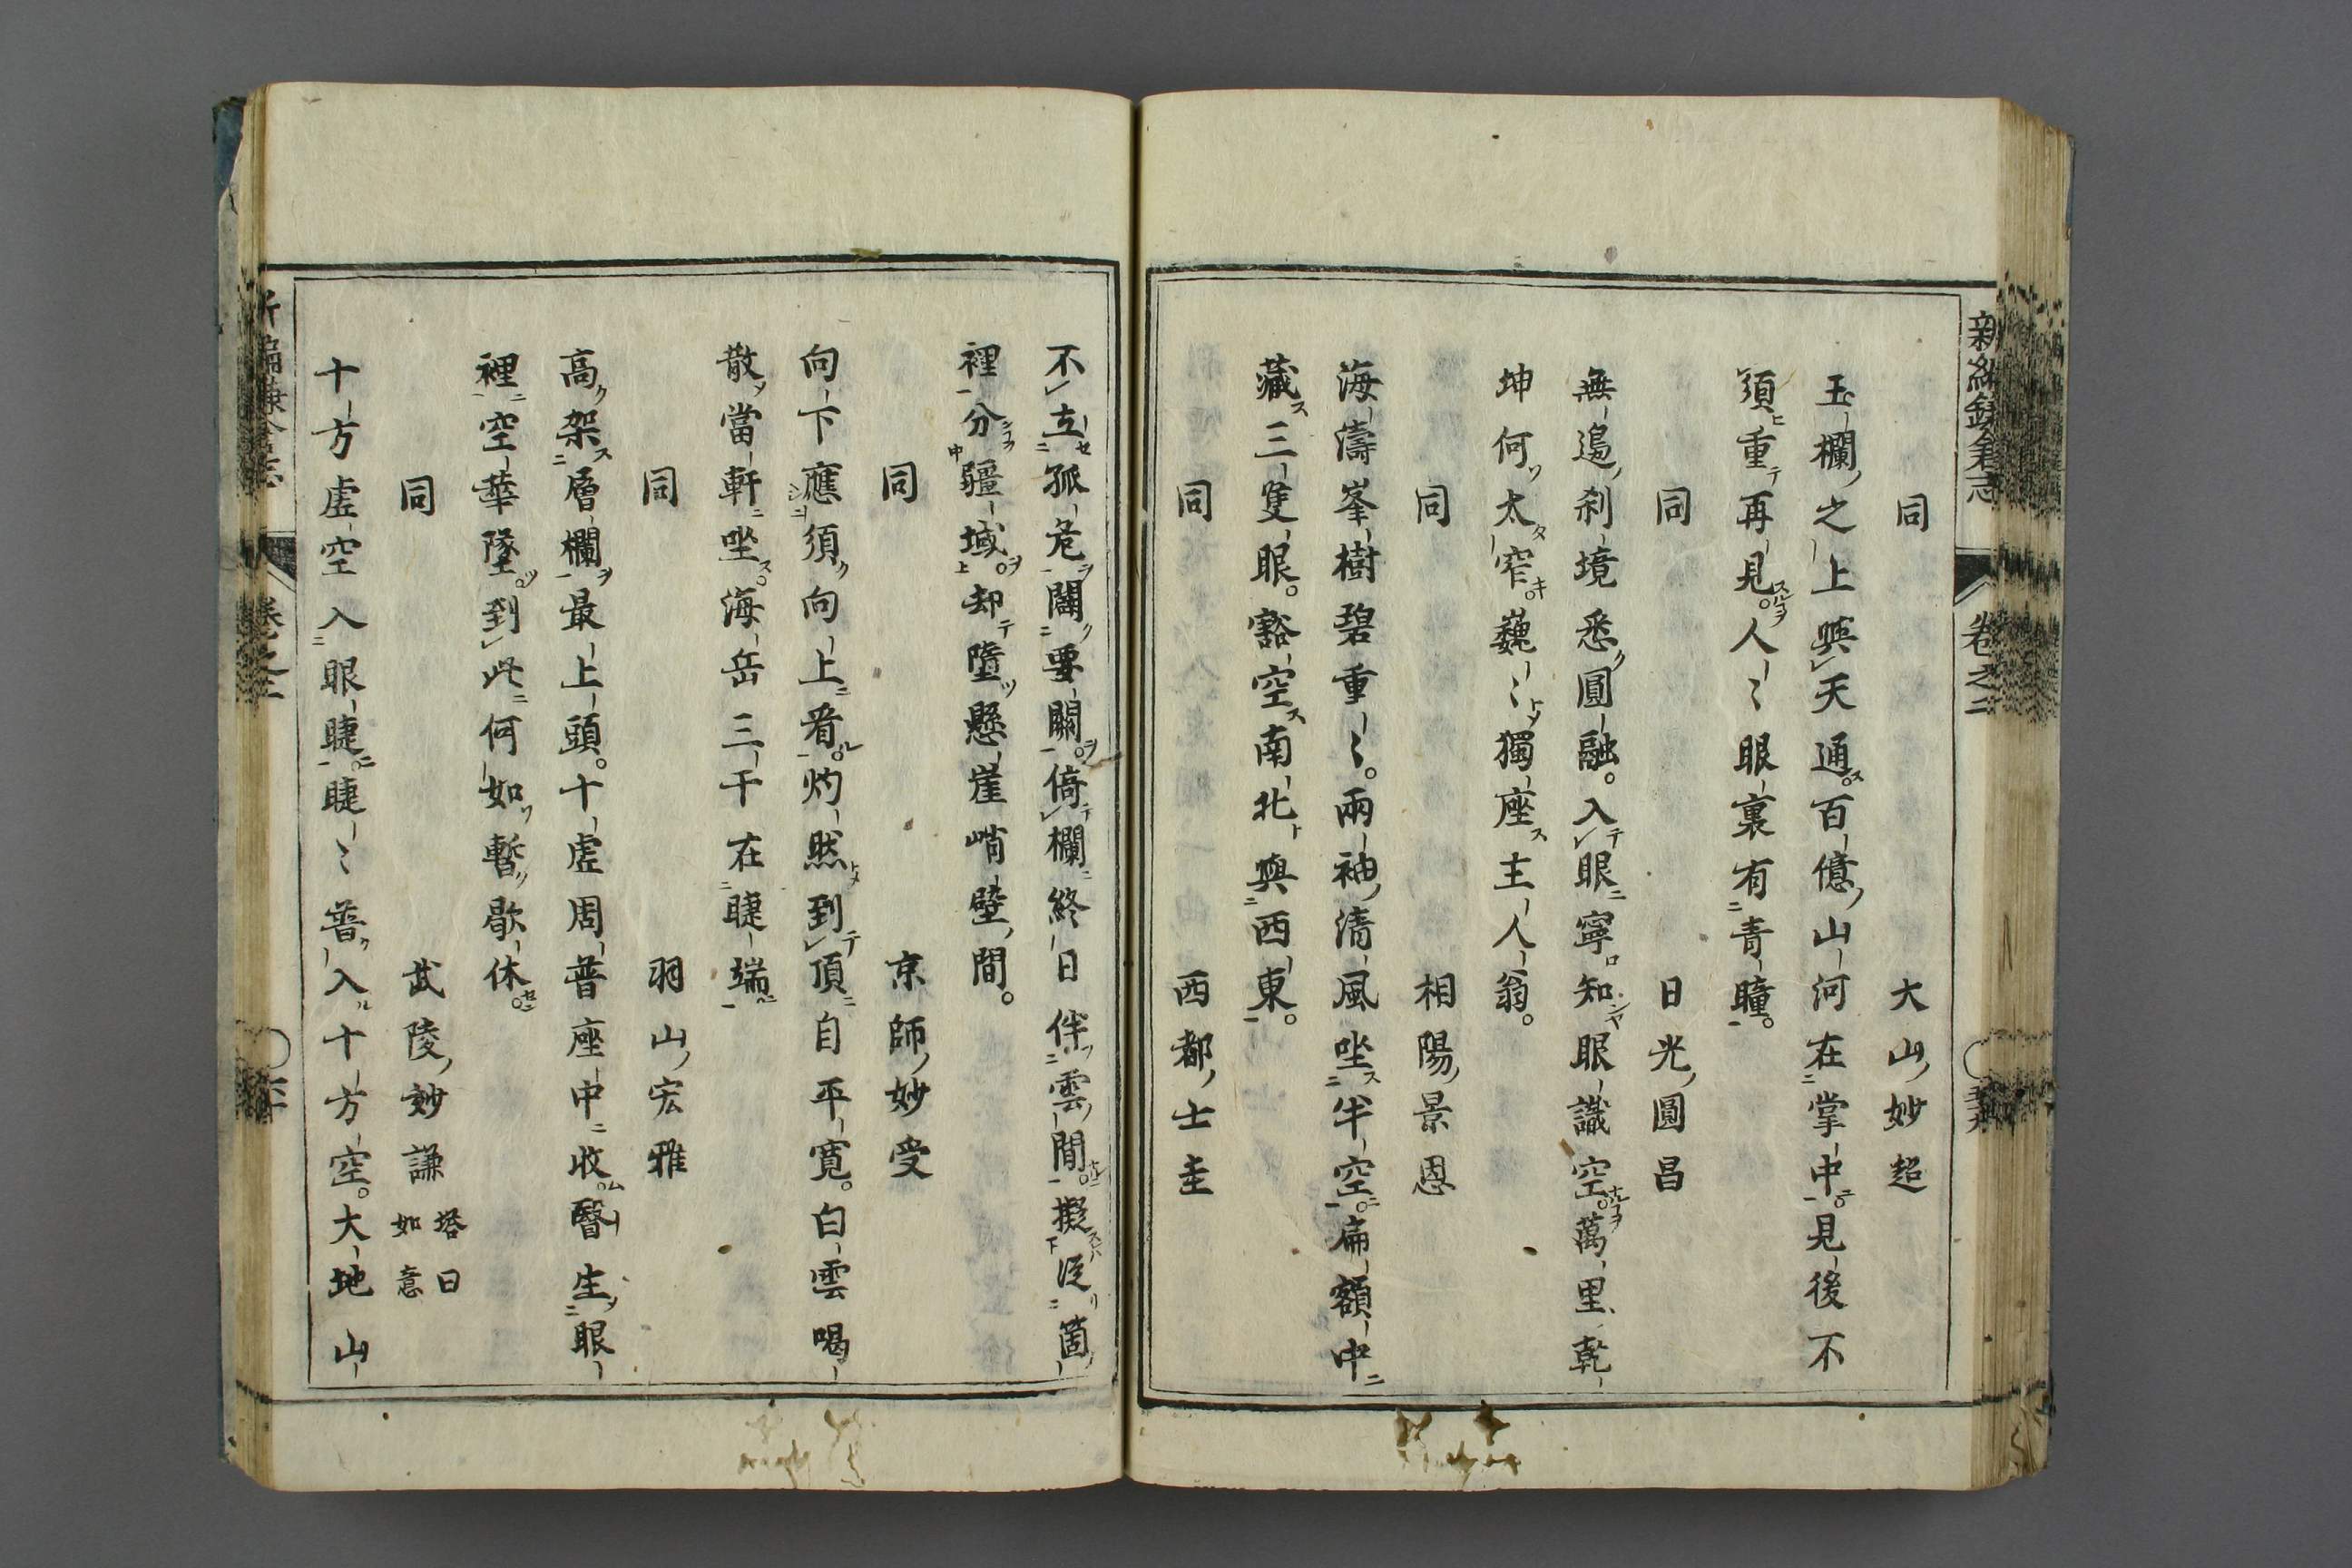 新編鎌倉志
卷之二
同　大山妙超
玉欄之上與天通百億山河在掌中見後不
須重再見人〻眼裏有青瞳
同　日光圓昌
無邊刹境悉圓融入眼寧知眼識空萬里乾
坤何太窄巍〻獨座主人翁
同　相陽景恩
海濤峯樹碧重〻兩袖清風坐半空扁額中
藏三隻眼豁空南北與西東
同　西都士圭
不立孤危闢要關倚欄終日伴雲間擬從箇
裡分疆域却墮懸崖峭壁間
同　京師妙受
向下應須向上看灼然到頂自平寬白雲喝
散當軒坐海岳三千在睫端
同　羽山宏雅
高架層欄最上頭十虛周普座中收瞖生眼
裡空華墜到此何如暫歇休
同　武陵妙謙 塔曰如意
十方虛空入眼睫睫〻普入十方空大地山
新編鎌倉志
卷之二